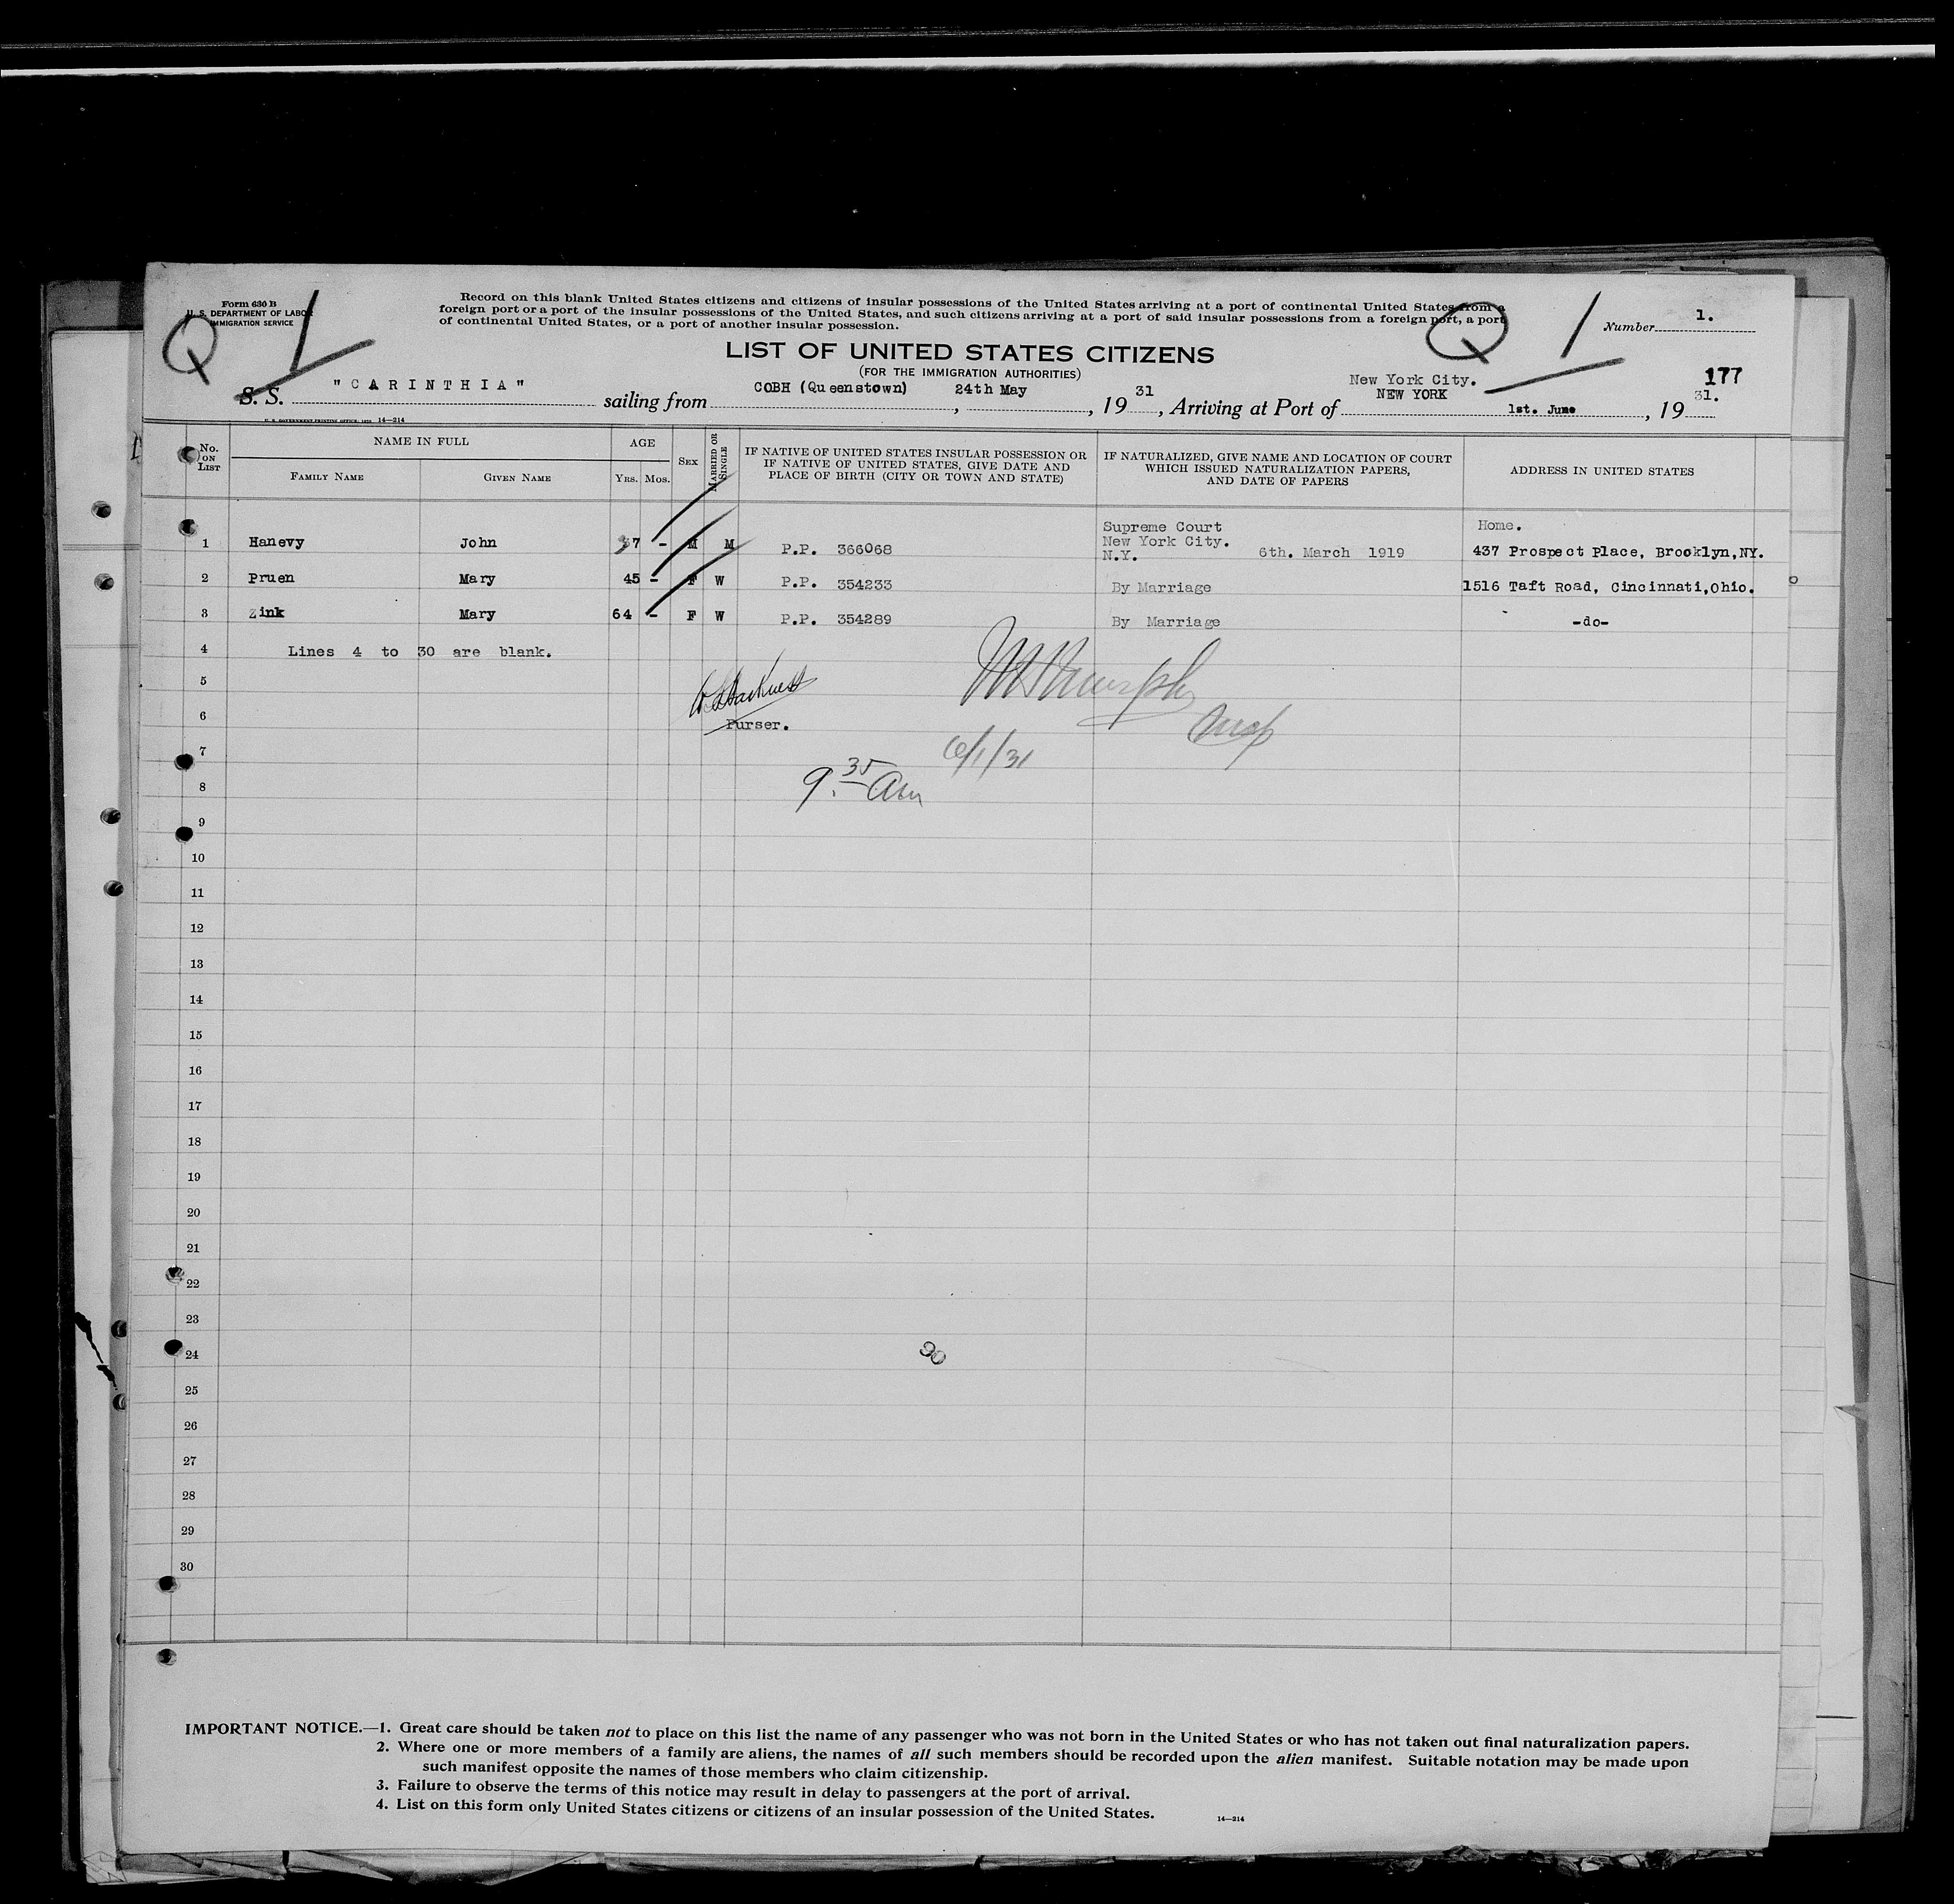 Form 630 B
U. S. DEPARTMENT OF LABOR
IMMIGRATION SERVICE
Record on this blank United States citizens and citizens of insular possessions of the United States arriving at a port of continental United States from a
foreign port or a port of the insular possessions of the United States, and such citizens arriving at a port of said insular possessions from a foreign port, a port
of continental United States, or a port of another insular possession.
Q 1
Q 1
Number 1.
LIST OF UNITED STATES CITIZENS
(FOR THE IMMIGRATION AUTHORITIES)
177
S. S. "CARINTHIA" sailing from COBH (Queenstown), 24th May, 1931, Arriving at Port of New York City. NEW YORK 1st. June, 1931.
14—214
No. ON LIST
NAME IN FULL
FAMILY NAME
GIVEN NAME
AGE
YRS. MOS.
SEX
MARRIED OR SINGLE
IF NATIVE OF UNITED STATES INSULAR POSSESSION OR
IF NATIVE OF UNITED STATES, GIVE DATE AND
PLACE OF BIRTH (CITY OR TOWN AND STATE)
IF NATURALIZED, GIVE NAME AND LOCATION OF COURT
WHICH ISSUED NATURALIZATION PAPERS,
AND DATE OF PAPERS
ADDRESS IN UNITED STATES
1 Hanevy John 37 - M M P.P. 366068 Supreme Court New York City. N.Y. 6th. March 1919 Home. 437 Prospect Place, Brooklyn,NY.
2 Pruen Mary 45 - F W P.P. 354233 By Marriage 1516 Taft Road, Cincinnati,Ohio.
3 Zink Mary 64 - F W P.P. 354289 By Marriage -do-
4 Lines 4 to 30 are blank.
5
6 Purser.
7 6/1/31
8 9.35 am
9
10
11
12
13
14
15
16
17
18
19
20
21
22
23
24
25
26
27
28
29
30
IMPORTANT NOTICE.—1. Great care should be taken not to place on this list the name of any passenger who was not born in the United States or who has not taken out final naturalization papers.
2. Where one or more members of a family are aliens, the names of all such members should be recorded upon the alien manifest. Suitable notation may be made upon
such manifest opposite the names of those members who claim citizenship.
3. Failure to observe the terms of this notice may result in delay to passengers at the port of arrival.
4. List on this form only United States citizens or citizens of an insular possession of the United States.
14—214